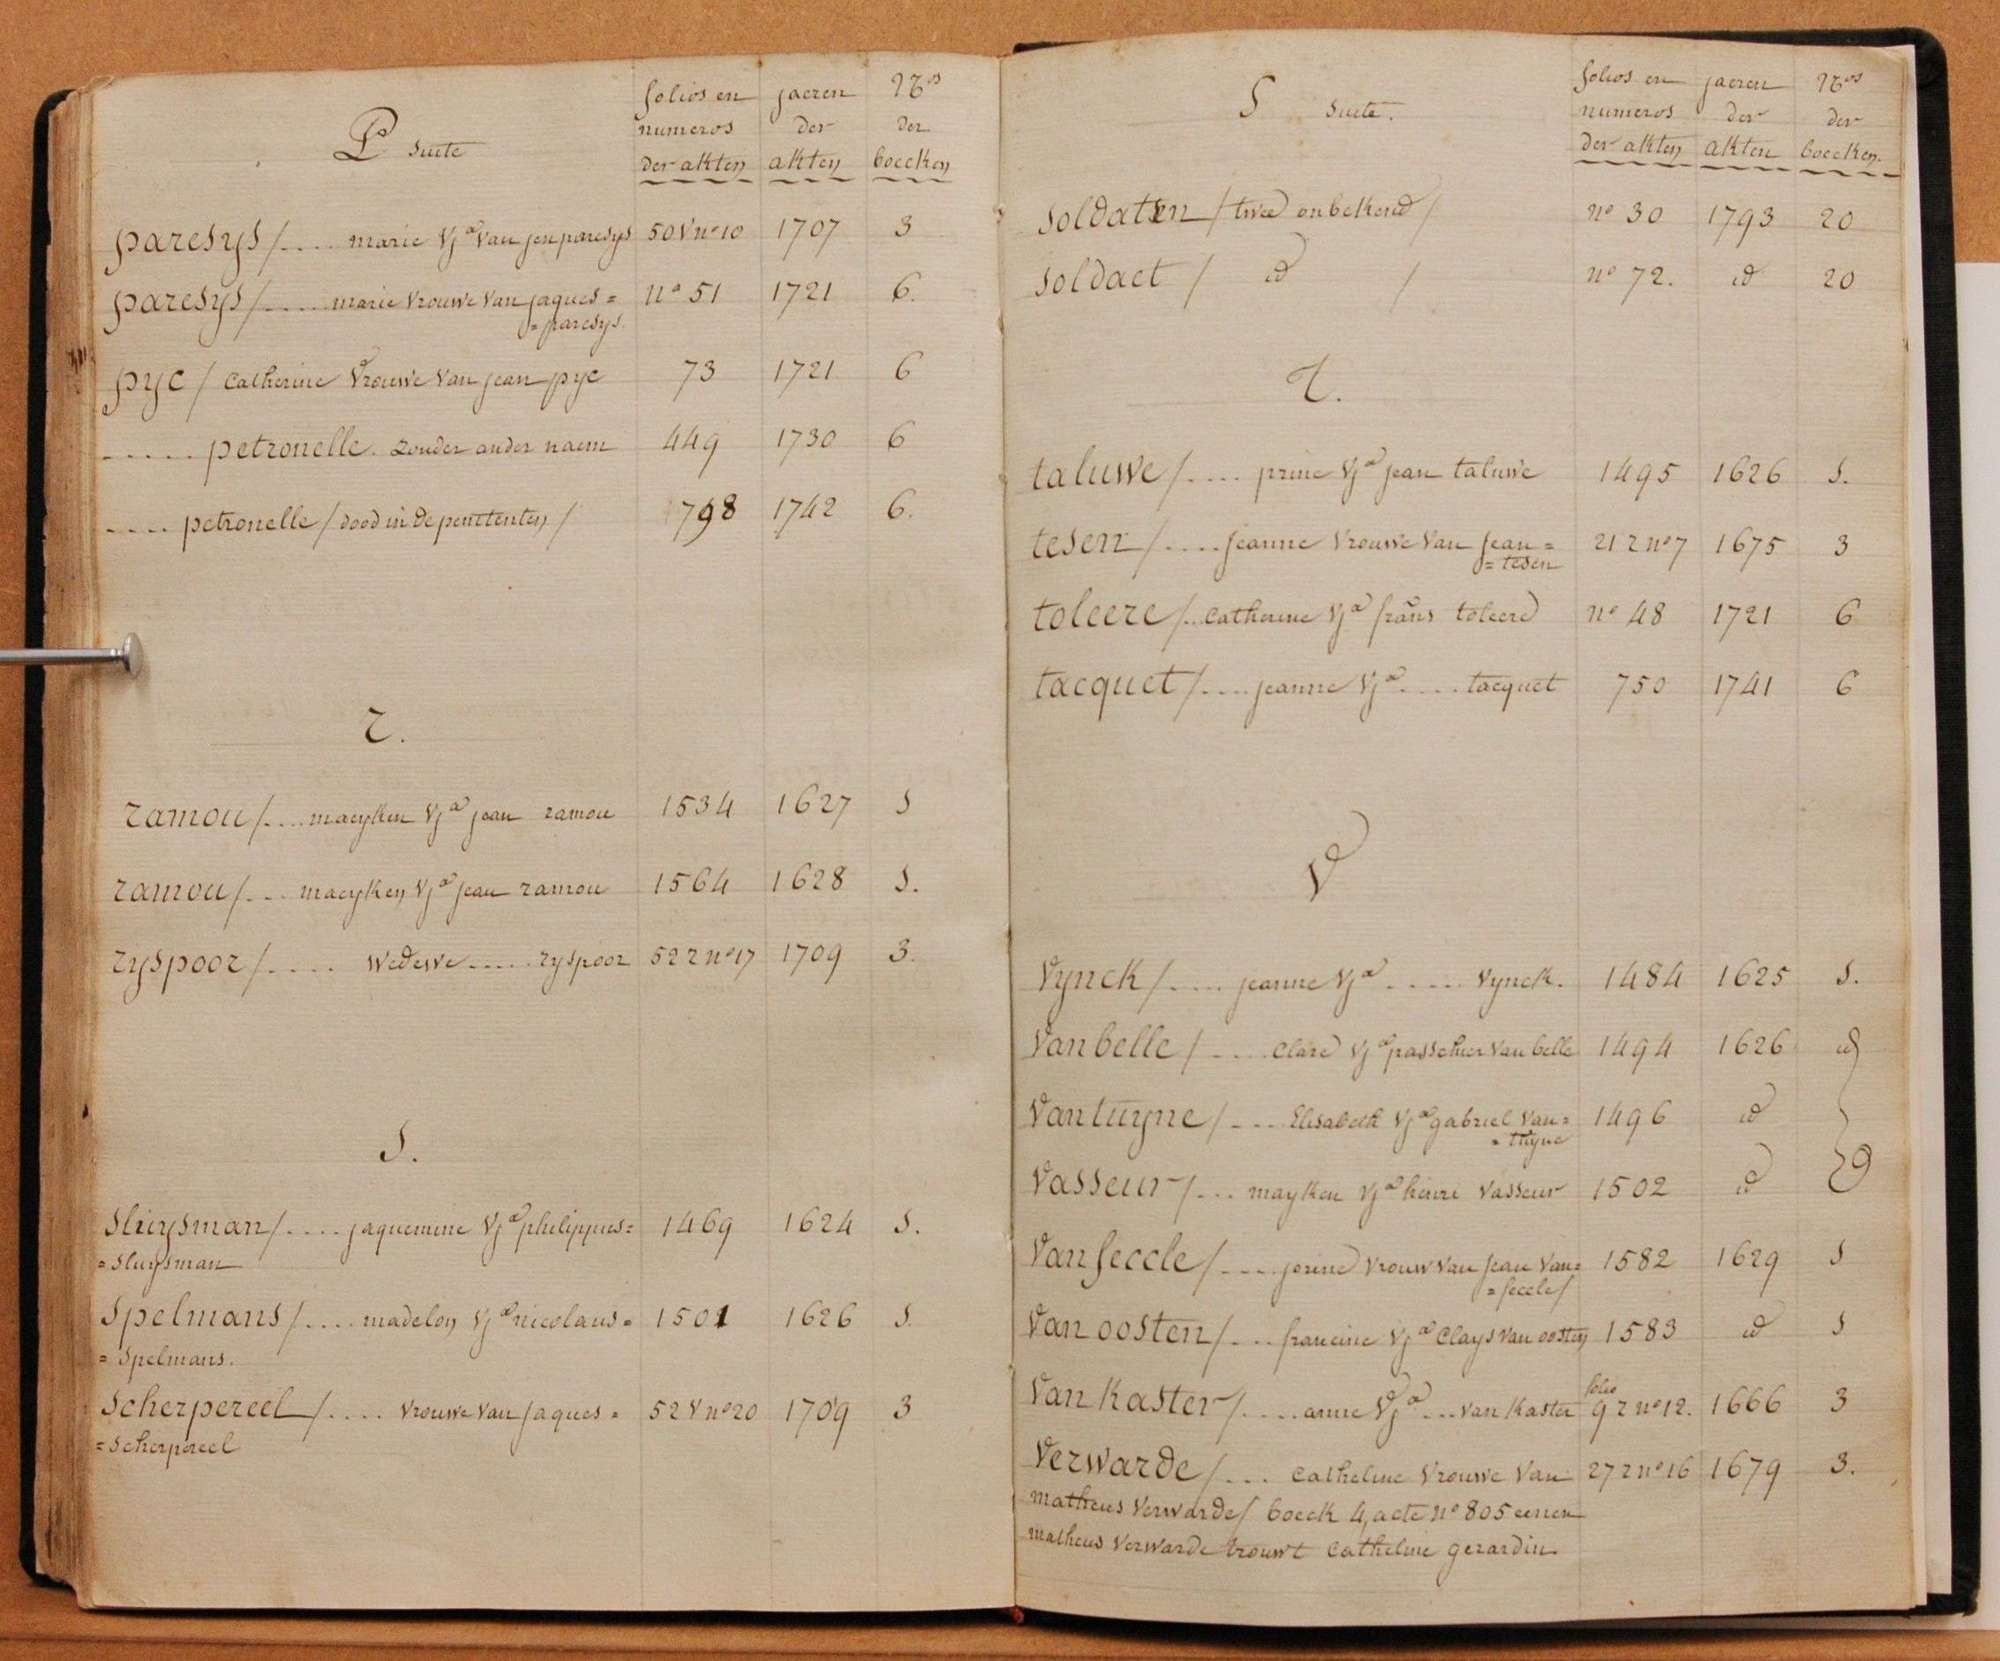 P suite
folios en numeros der akten
jaeren der akten
Nos der boecken
paresys / .... marie Vve van jan paresys 50 V no 10 1707 3
paresys / .... marie vrouwe van jaques = no 51 1721 6.
= paresys.
pyc / Catherine Vrouwe van jean pyc 73 1721 6
..... petronelle. zonder ander naem 449 1730 6
.... petronelle / dood in de penitenten / 798 1742 6.
r.
ramou / .... maeyken Vve jean ramou 1534 1627 S
ramou / ... maeyken Vve jean ramou 1564 1628 S.
ryspoor / .... wedewe ..... ryspoor 52 r no 17 1709 3.
S.
Sluysman / .... jaquemine Vve philippus = 1469 1624 S.
= Sluysman
Spelmans / .... madelon Vve nicolaus = 1501 1626 S.
= Spelmans.
Scherpereel / .... vrouwe van jaques = 52 V no 20 1709 3
= Scherpereel
S suite.
folios en numeros der akten
jaeren der akten
Nos der boecken.
Soldaten / twee onbekend / no 30 1793 20
Soldaet / id / no 72. id 20
T.
taluwe / .... prine Vve jean taluwe 1495 1626 S.
tesen / .... jeanne vrouwe van jean = 21 r no 7 1675 3
= tesen
toleere / .. catherine Vve frans toleere no 48 1721 6
tacquet / .... jeanne Vve .... tacquet 750 1741 6
V
Vynck / .... jeanne Vve ..... Vynck. 1484 1625 S.
Van belle / .... Clare Vve passchier van belle 1494 1626 id
Van tuyne / .... Elisabeth Vve gabriel van = 1496 id
= tuyne
Vasseur / ... mayken Vve henri Vasseur 1502 id
Van seccle / .... jorine vrouw van jean van = 1582 1629 S
= seccle /
Van oosten / ... francine Vve Clays van oosten 1583 id S
Van Kaster / .... anne Vve ... van Kaster folio 9 r no 12. 1666 3
Verwarde / ... catheline vrouwe van 27 r no 16 1679 3.
matheus Verwarde / boeck 4, acte no 805 eenen
matheus Verwarde trouwt catheline gerardin.